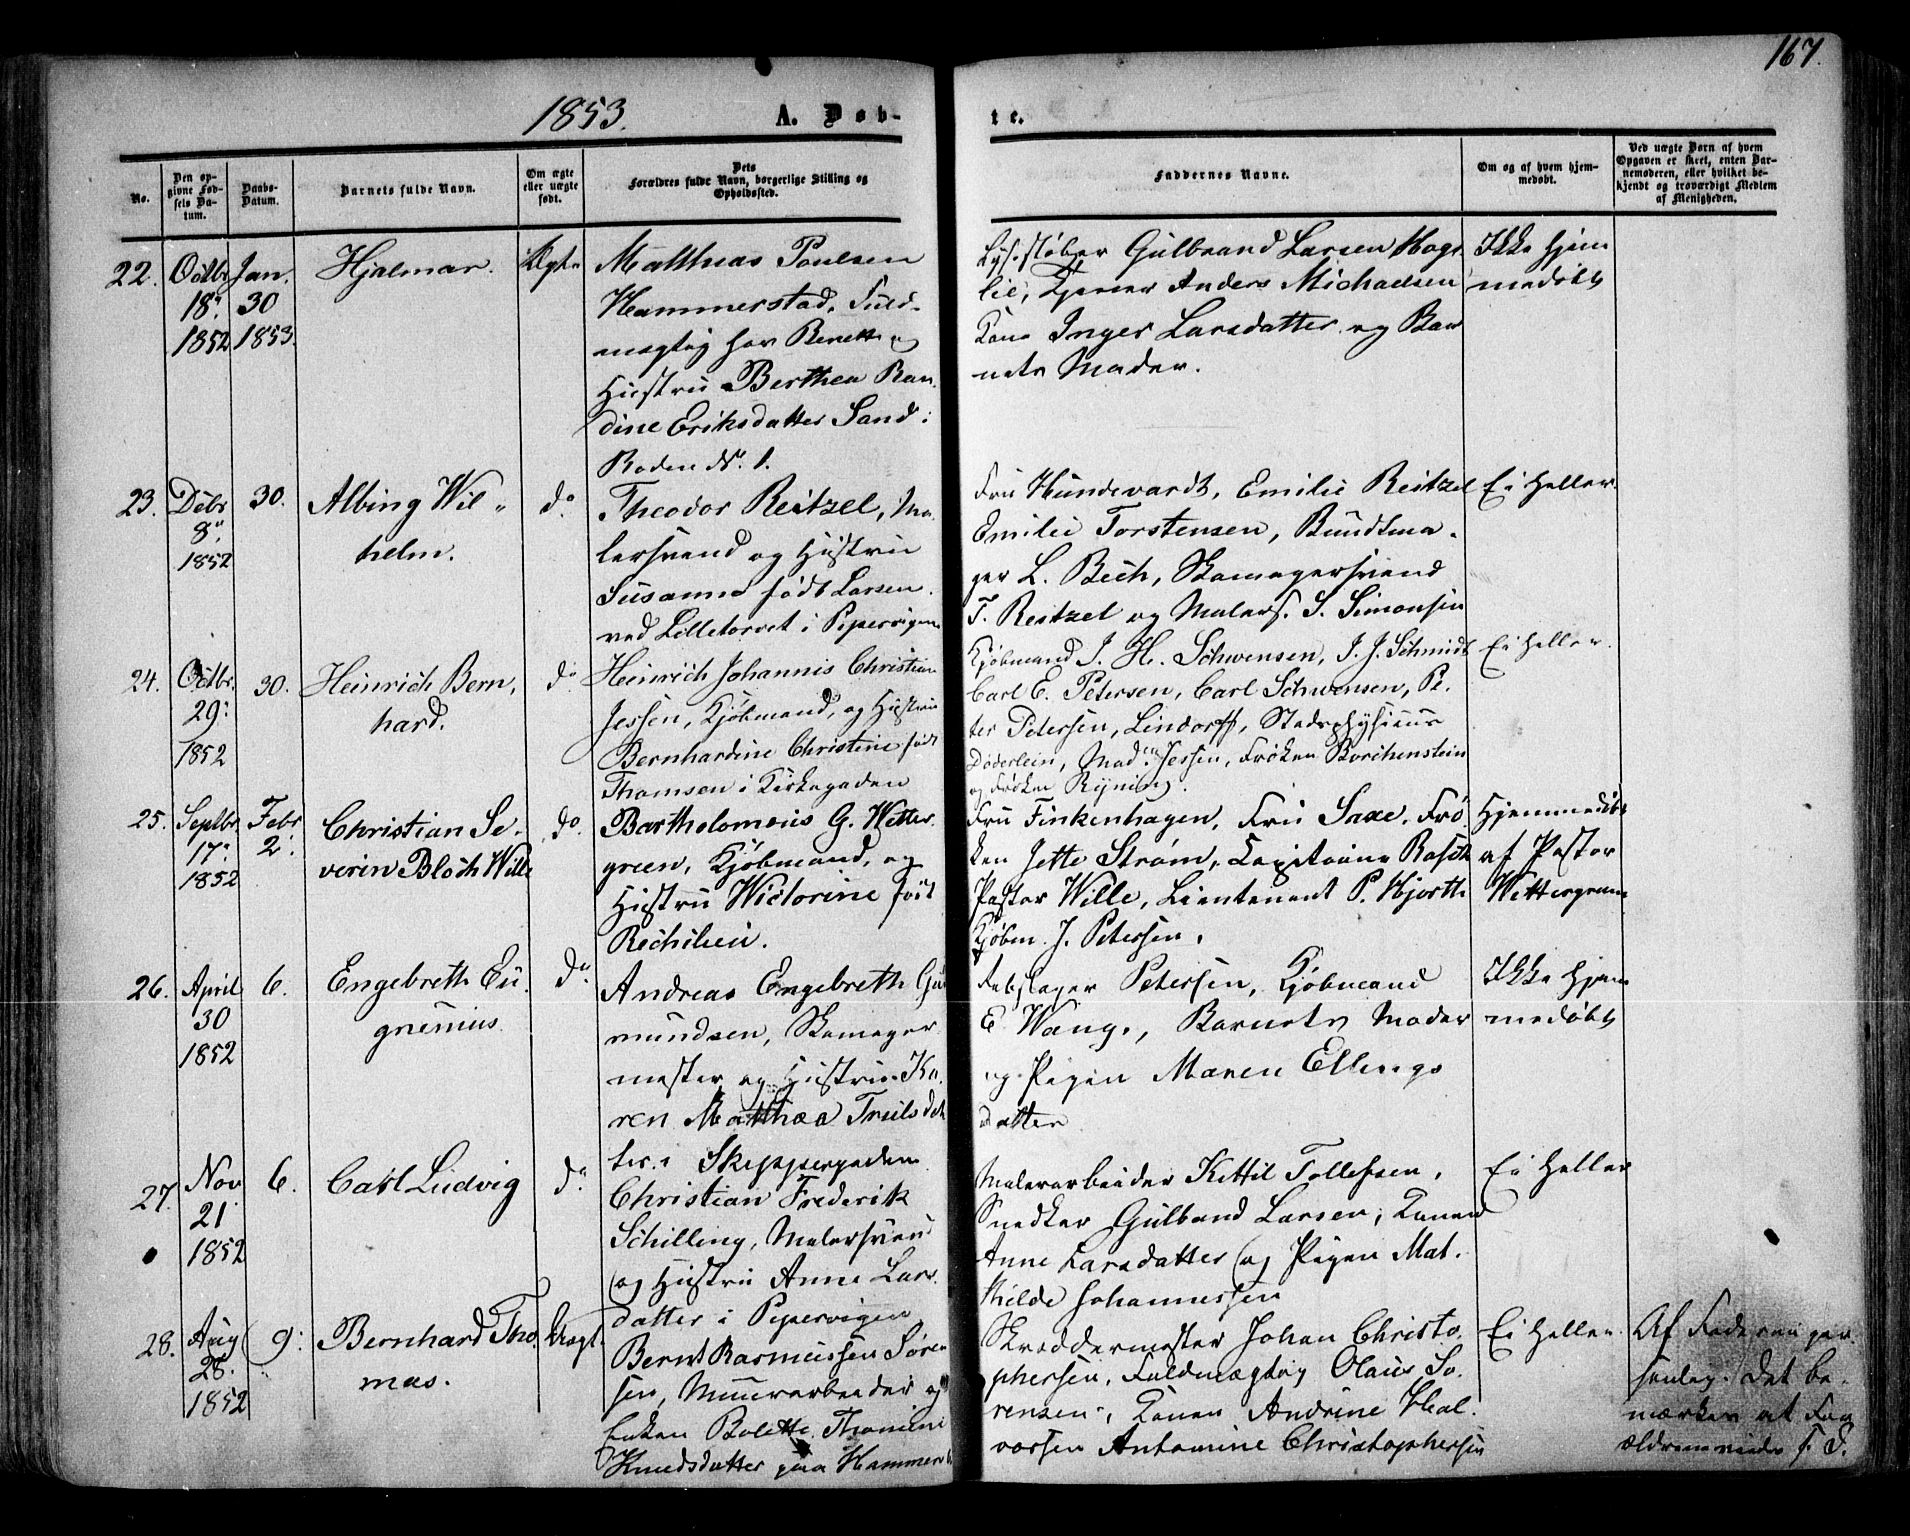 167.
1853. A. Døb-
te.
No.
Den op-
givne Fød-
sels Da-
tum.
Daabs-
Datum.
Barnets fulde Navn.
Om ægte
eller uægte
født.
Dets
Forældres fulde Navn, borgerlige Stilling og
Opholdssted.
Faddernes Navne.
Om og af hvem hjem-
medøbt.
Ved uægte Børn af hvem
Opgaven er skeet, enten Bar-
nemoderen, eller hvilket be-
kjendt og troværdigt Medlem
af Menigheden.
22.
Octbr
18"
1852
Jan.
30
1853.
Hjalmar.
Ægte
Matthias Poulsen
Hammerstad, Fuld-
mægtig hos Benett og
Hustru Berthea Ran
dine Eriksdatter Sand i
Roden No. 1.
Lysestøber Gulbrand Larsen Hogs
lie, Anders Michaelsen
Kone Inger Larsdatter og Bar
nets Moder.
Ikke hjem
medøbt
23.
Debr
8"
1852
30.
Albing Wil"
helm.
do.
Theodor Reitzel, Ma-
lersvend og Hustru
Susanne født Larsen.
ved Lilletorvet i Pipervigen
Fru Hundevardt, Emilie Reitzel
Emilie Torstensen, Bundtma-
ger L. Bech, Skomagersvend
T. Reitzel og Malers. S. Simonsen
Ei heller.
24.
Octbr.
29:
1852
30.
Heinrich Bern,
hard.
do
Heinrich Johannis Christian
Jessen, Kjøbmand, og Hustru
Bernhardine Christine født
Thomsen i Kirkegaden
Kjøbmand J. H. Schwensen, J. J. Schmidt
Carl E. Petersen, Carl Schwensen, Pe-
ter Petersen, Lindorff, Stadsphysicus
Døderlein, Mad. Jessen, Frøken Borchenstein
og Frøken Ryning.
Ei heller.
25.
Septbr
17:
1852
Febr
2.
Christian Se-
verin Bloch Wille
do.
Bartholomeus G. Wetter-
green, Kjøbmand, og
Hustru Wictorine født
Richelieu.
Fru Finkenhagen, Fru Saxe, Frø
ken Jette Strøm, Capitaine Rasch
Pastor Wille, Lieutenant P. Hjorth
Kjøbm. J. Petersen.
Hjemmedøbt
af Pastor
Wettergreen
26.
April
30
1852
6.
Engebreth Eu-
genius.
do
Andreas Engebreth Gud
mundsen, Skomager
mester og Hustru Ka-
ren Matthea Trulsdat
ter i Skippergaden.
Rebslager Petersen, Kjøbmand
E. Wang., Barnets Moder
og Pigen Maren Ellings
datter
Ikke hjem
medøbt
27.
Nov
21
1852
6.
Carl Ludvig
do
Christian Frederik
Schilling, Malersvend
og Hustru Anne Lars
datter i Pipervigen
Malerarbeider Kittil Tollefsen,
Snedker Gulbrand Larsen, Konen
Anne Larsdatter og Pigen Mat-
thilde Johannessen
Ei heller
28.
Aug
28.
1852
9:
Bernhard Tho
mas.
Uægte
Bernt Rasmussen Søren
sen, Muurarbeider og
Enken Bolette Thomine
Knudsdatter paa Hammers
Skreddermester Johan Christo-
phersen, Fuldmægtig Olaus Sø-
rensen, Konen Andrine Hal-
vorsen Antomine Christophersen
Ei heller
Af Faderen per
sonlig. Det be-
mærkes at For
ældrene